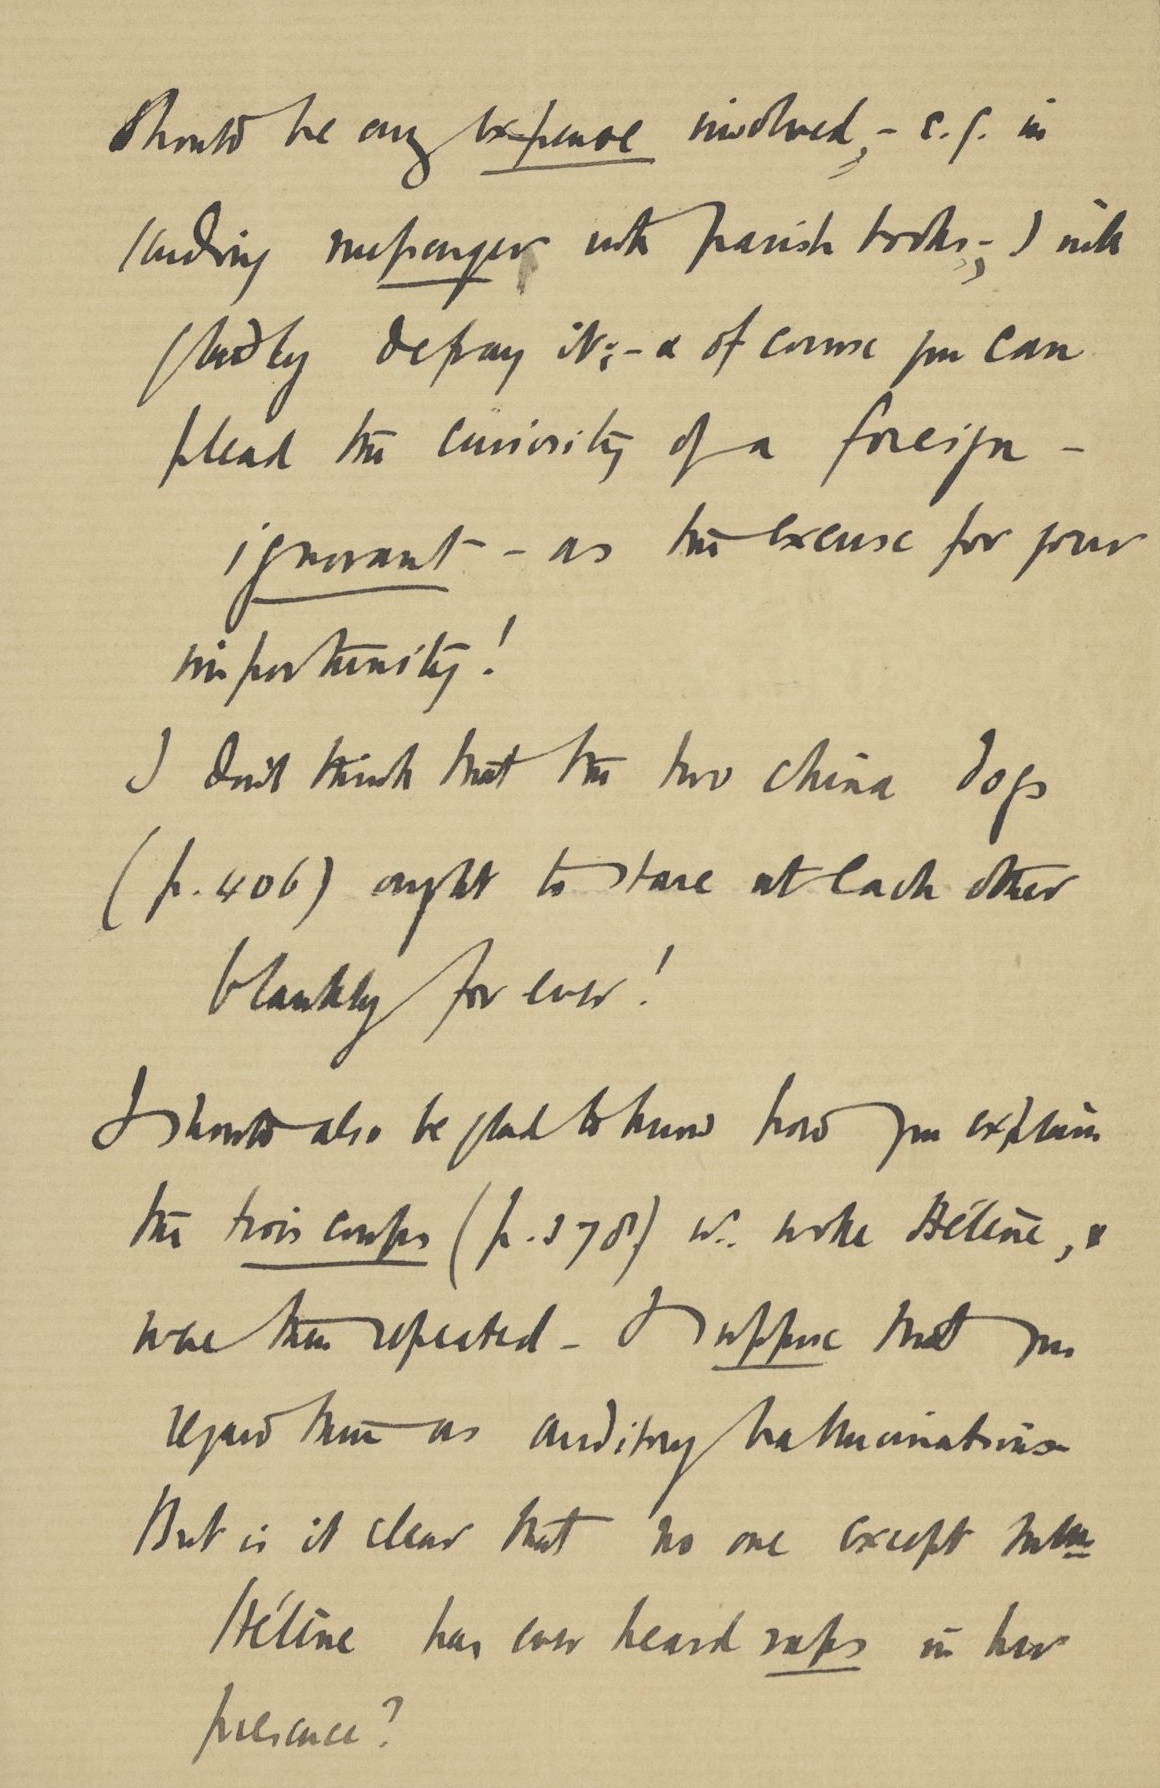 should be any expense involved, - e.g. in
sending messenger with parish books, - I will
gladly defray it; - & of course you can
plead the curiosity of a foreign -
ignorant - as the excuse for your
importunity!
I don't think that the two china dogs
(p. 406) ought to stare at each other
blankly for ever!
I should also be glad to know how you explain
the trois coups (p. 378) wh. woke Hélène, &
were then repeated - I suppose that you
regard them as auditory hallucinations
But is it clear that no one except Mlle
Hélène has ever heard raps in her
presence?